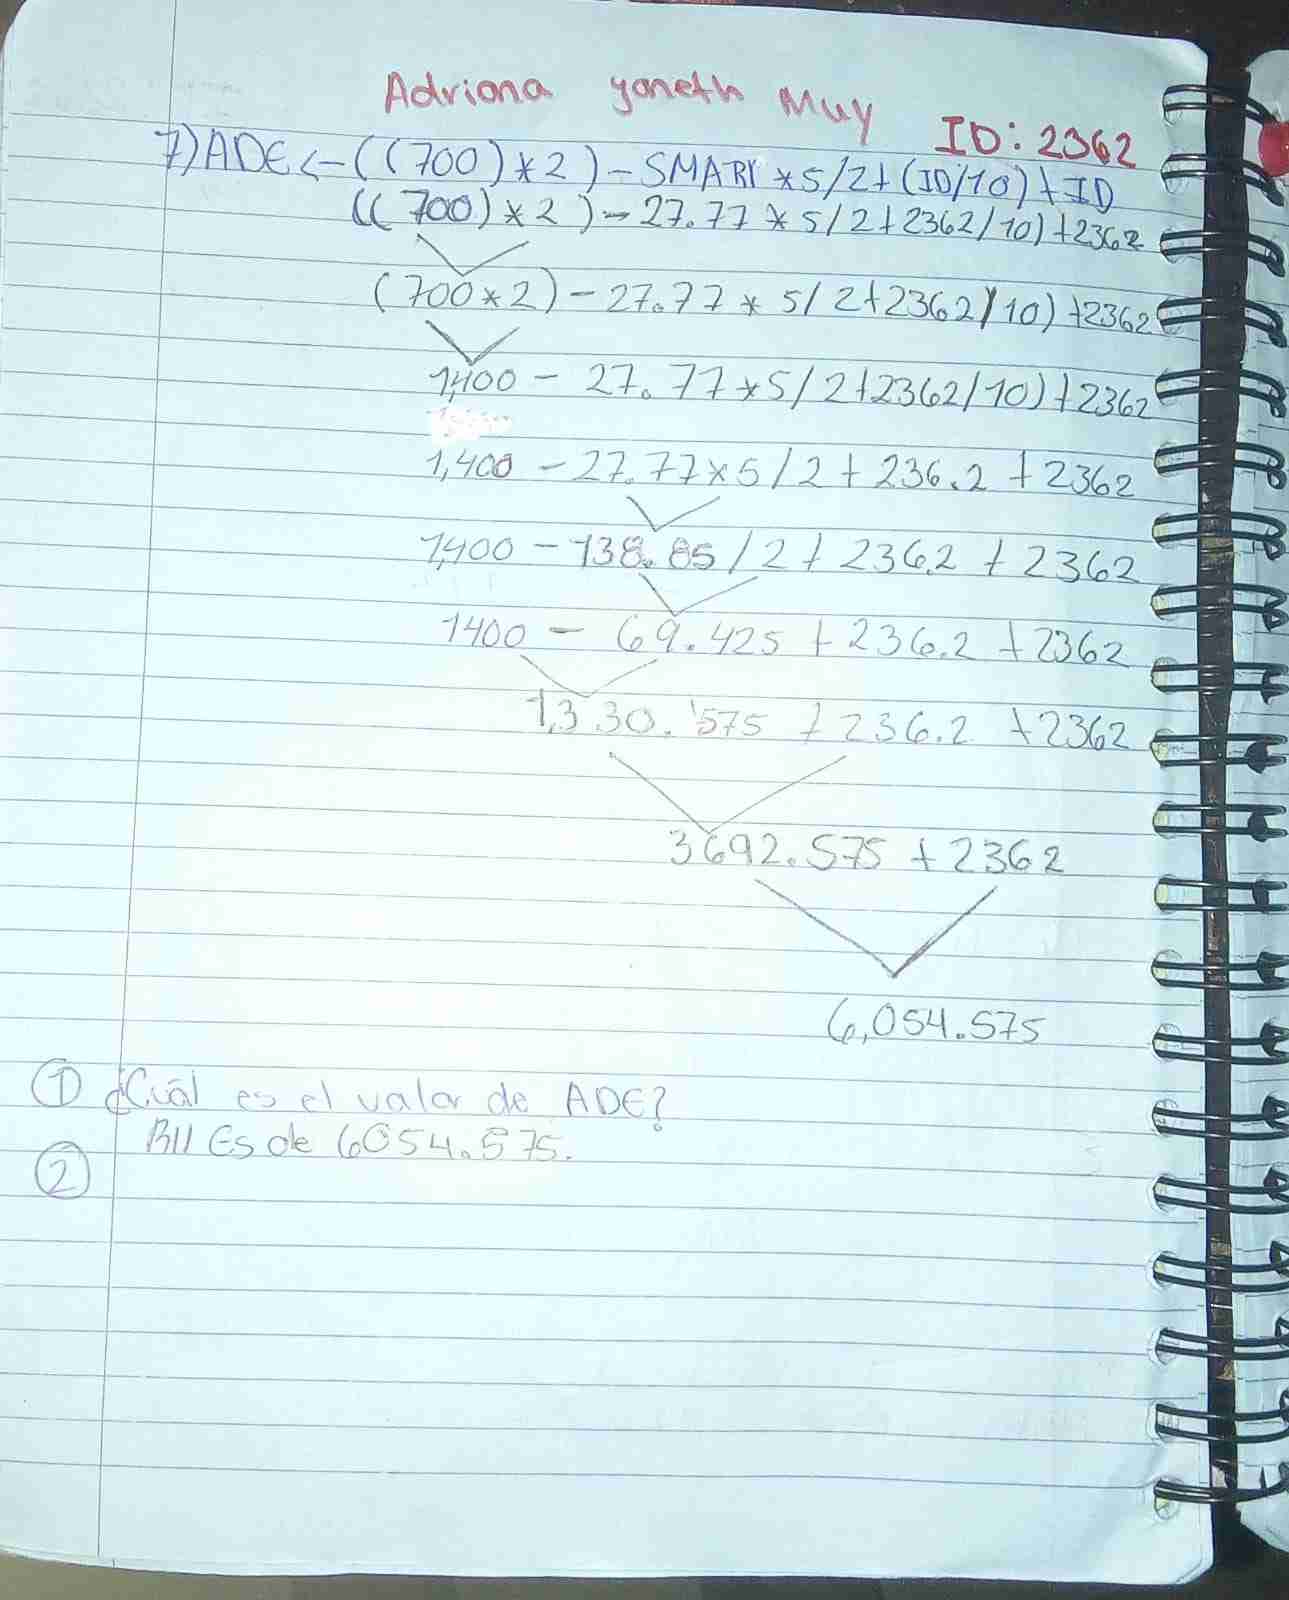 Adriana yaneth Muy ID: 2362
7) ADE <- ((700) * 2) - SMART * 5/2 + (ID/10) + ID
((700) * 2) - 27.77 * 5/2 + 2362/10) + 2362
(700 * 2) - 27.77 * 5/2 + 2362/10) + 2362
1,400 - 27.77 * 5/2 + 2362/10) + 2362
1,400 - 27.77 x 5/2 + 236.2 + 2362
1,400 - 138.85/2 + 236.2 + 2362
1400 - 69.425 + 236.2 + 2362
1,330.575 + 236.2 + 2362
3692.575 + 2362
6,054.575
① ¿Cuál es el valor de ADE?
R// Es de 6054.575.
②